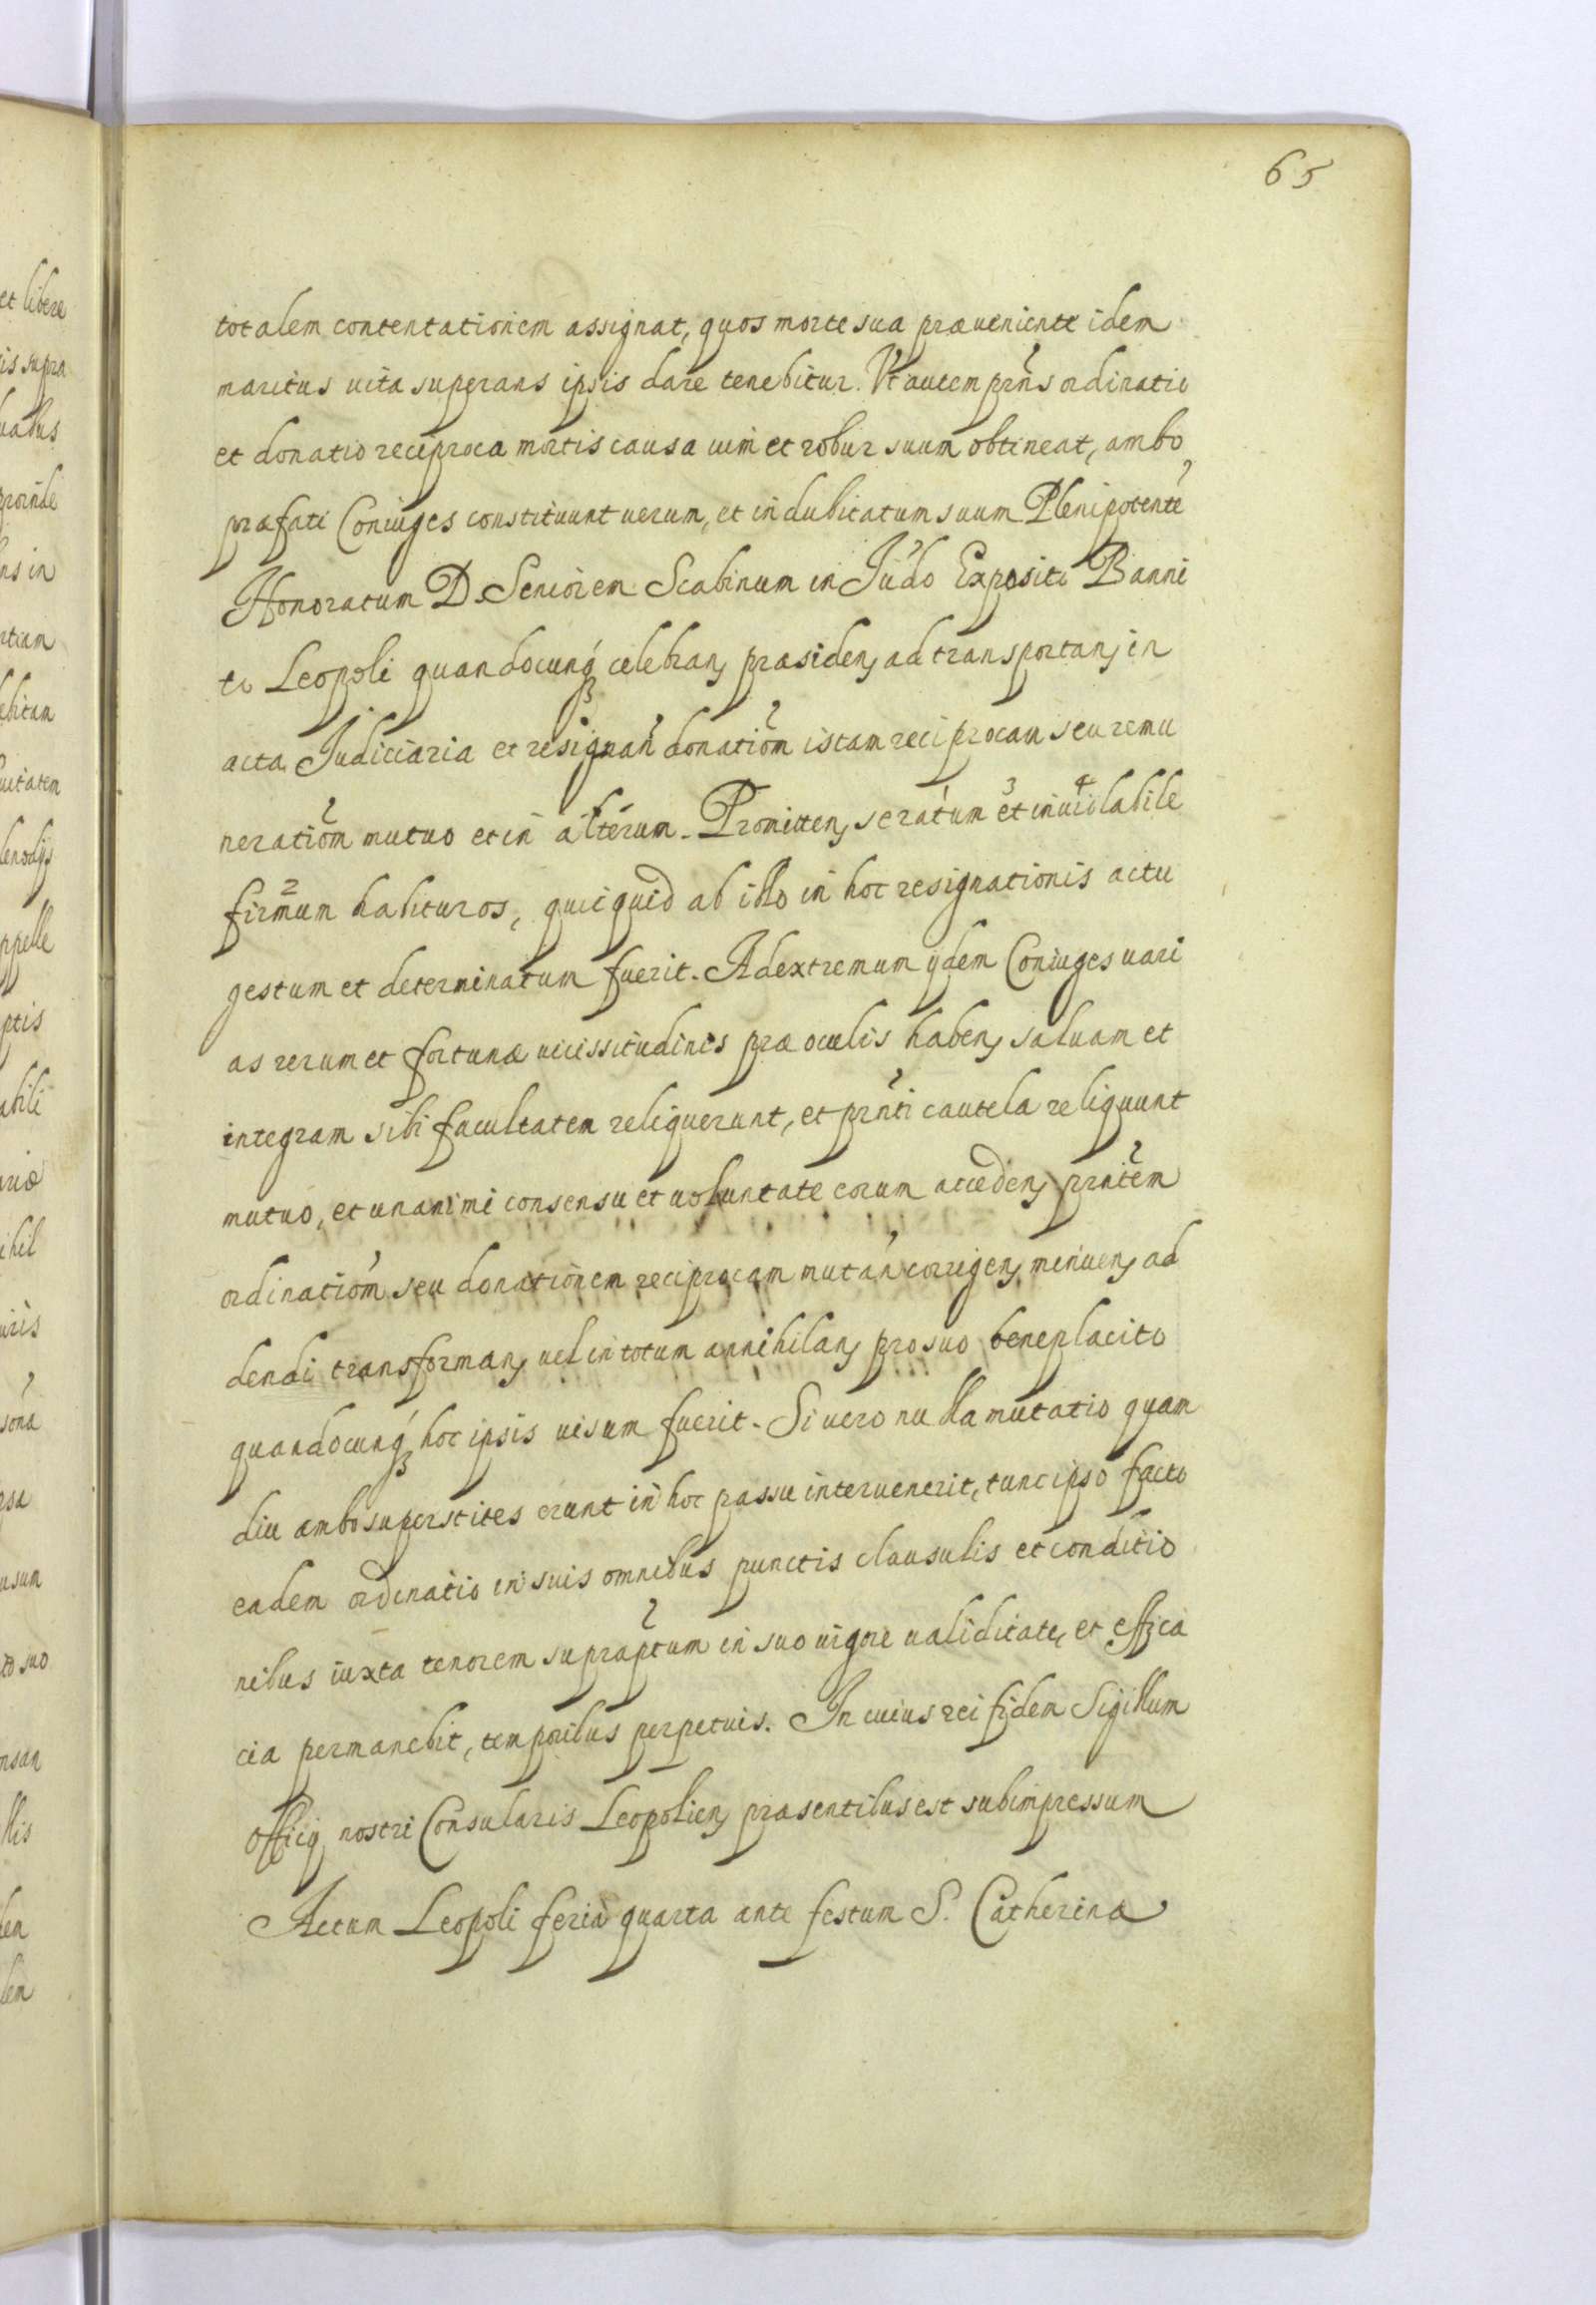 65
totalem contentationem assignat, quos morte sua praeueniente idem
maritus uita superans ipsis dare tenebitur. Vt autem prñs ordinatio
et donatio reciproca mortis causa uim et robur suum obtineat, ambo
praefati Coniuges constituunt uerum, et indubitatum suum Plenipotente
Honoratum D. Seniorem Scabinum in Iudo Expositi Banni
to Leopoli quandocunq celebran, praesiden, ad transportan, in
acta Judiciaria et resignan donatiom istam reciprocam seu remu
neratiom mutuo et in alterum. Promitten, se ratum et inuiolabile
firmum habituros, quicquid ab illo in hoc resignationis actu
gestum et determinatum fuerit. Ad extremum ijdem Coniuges uari
as rerum et fortunae uicissitudines prae oculis haben, saluam et
integram sibi facultatem reliquerunt, et prñti cautela relinquunt
mutuo, et unanimi consensu et uoluntate eorum acceden, prntem
ordinatiom seu donationem reciprocam mutan corrigen, minuen, ad
dendi transforman, uel in totum annihilan, pro suo beneplacito
quandocunq hoc ipsis uisum fuerit. Si uero nulla mutatio quam
diu ambo superstites erunt in hoc passu interuenerit, tunc ipso facto
eadem ordinatio in suis omnibus punctis clausulis et conditio
nibus iuxta tenorem supraptum in suo uigore ualiditate, et effica
cia permanebit, temporibus perpetuis. In cuius rei fidem Sigillum
Officij nostri Consularis Leopolien, praesentibus est subimpressum
Actum Leopoli feria quarta ante festum S. Catherinae
et libere
is supra
proinde
ns in
ebitam
ppelle
ptis
abili
ihil
uris
sona
usum
to suo